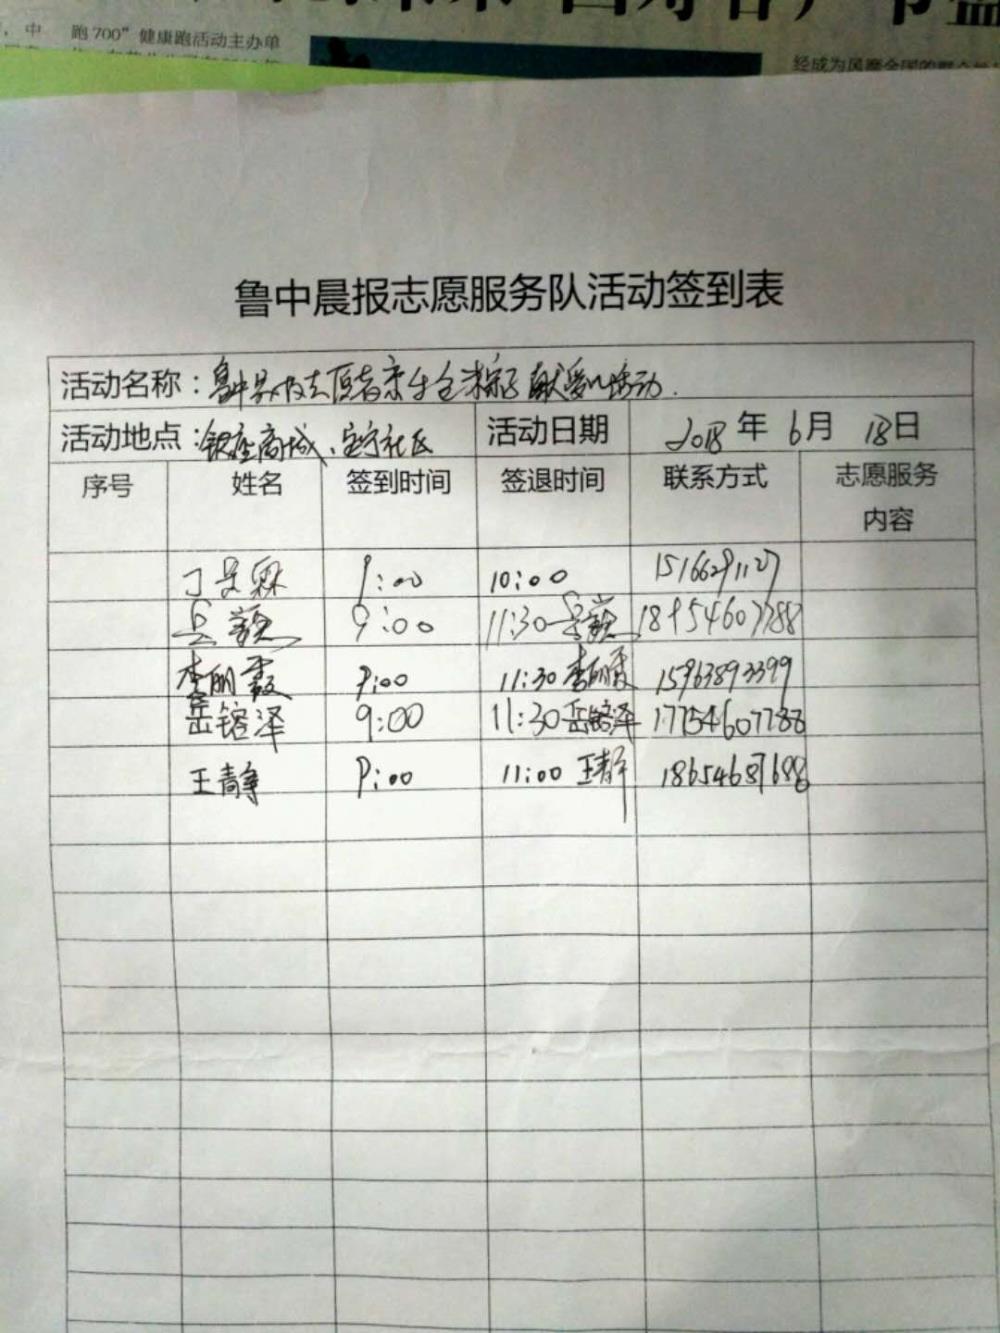 跑700”健康跑活动主办单
鲁中晨报志愿服务队活动签到表
活动名称：鲁中晨报志愿者 献爱心活动.
活动地点：银座商城、社区 活动日期 2018年6月18日
序号 姓名 签到时间 签退时间 联系方式 志愿服务
内容
9:00 10:00
9:00 11:30 18954607788
李丽霞 9:00 11:30 李丽霞 15963893399
岳镕泽 9:00 11:30 岳镕泽 17754607788
王静 9:00 11:00 王静 18654687688